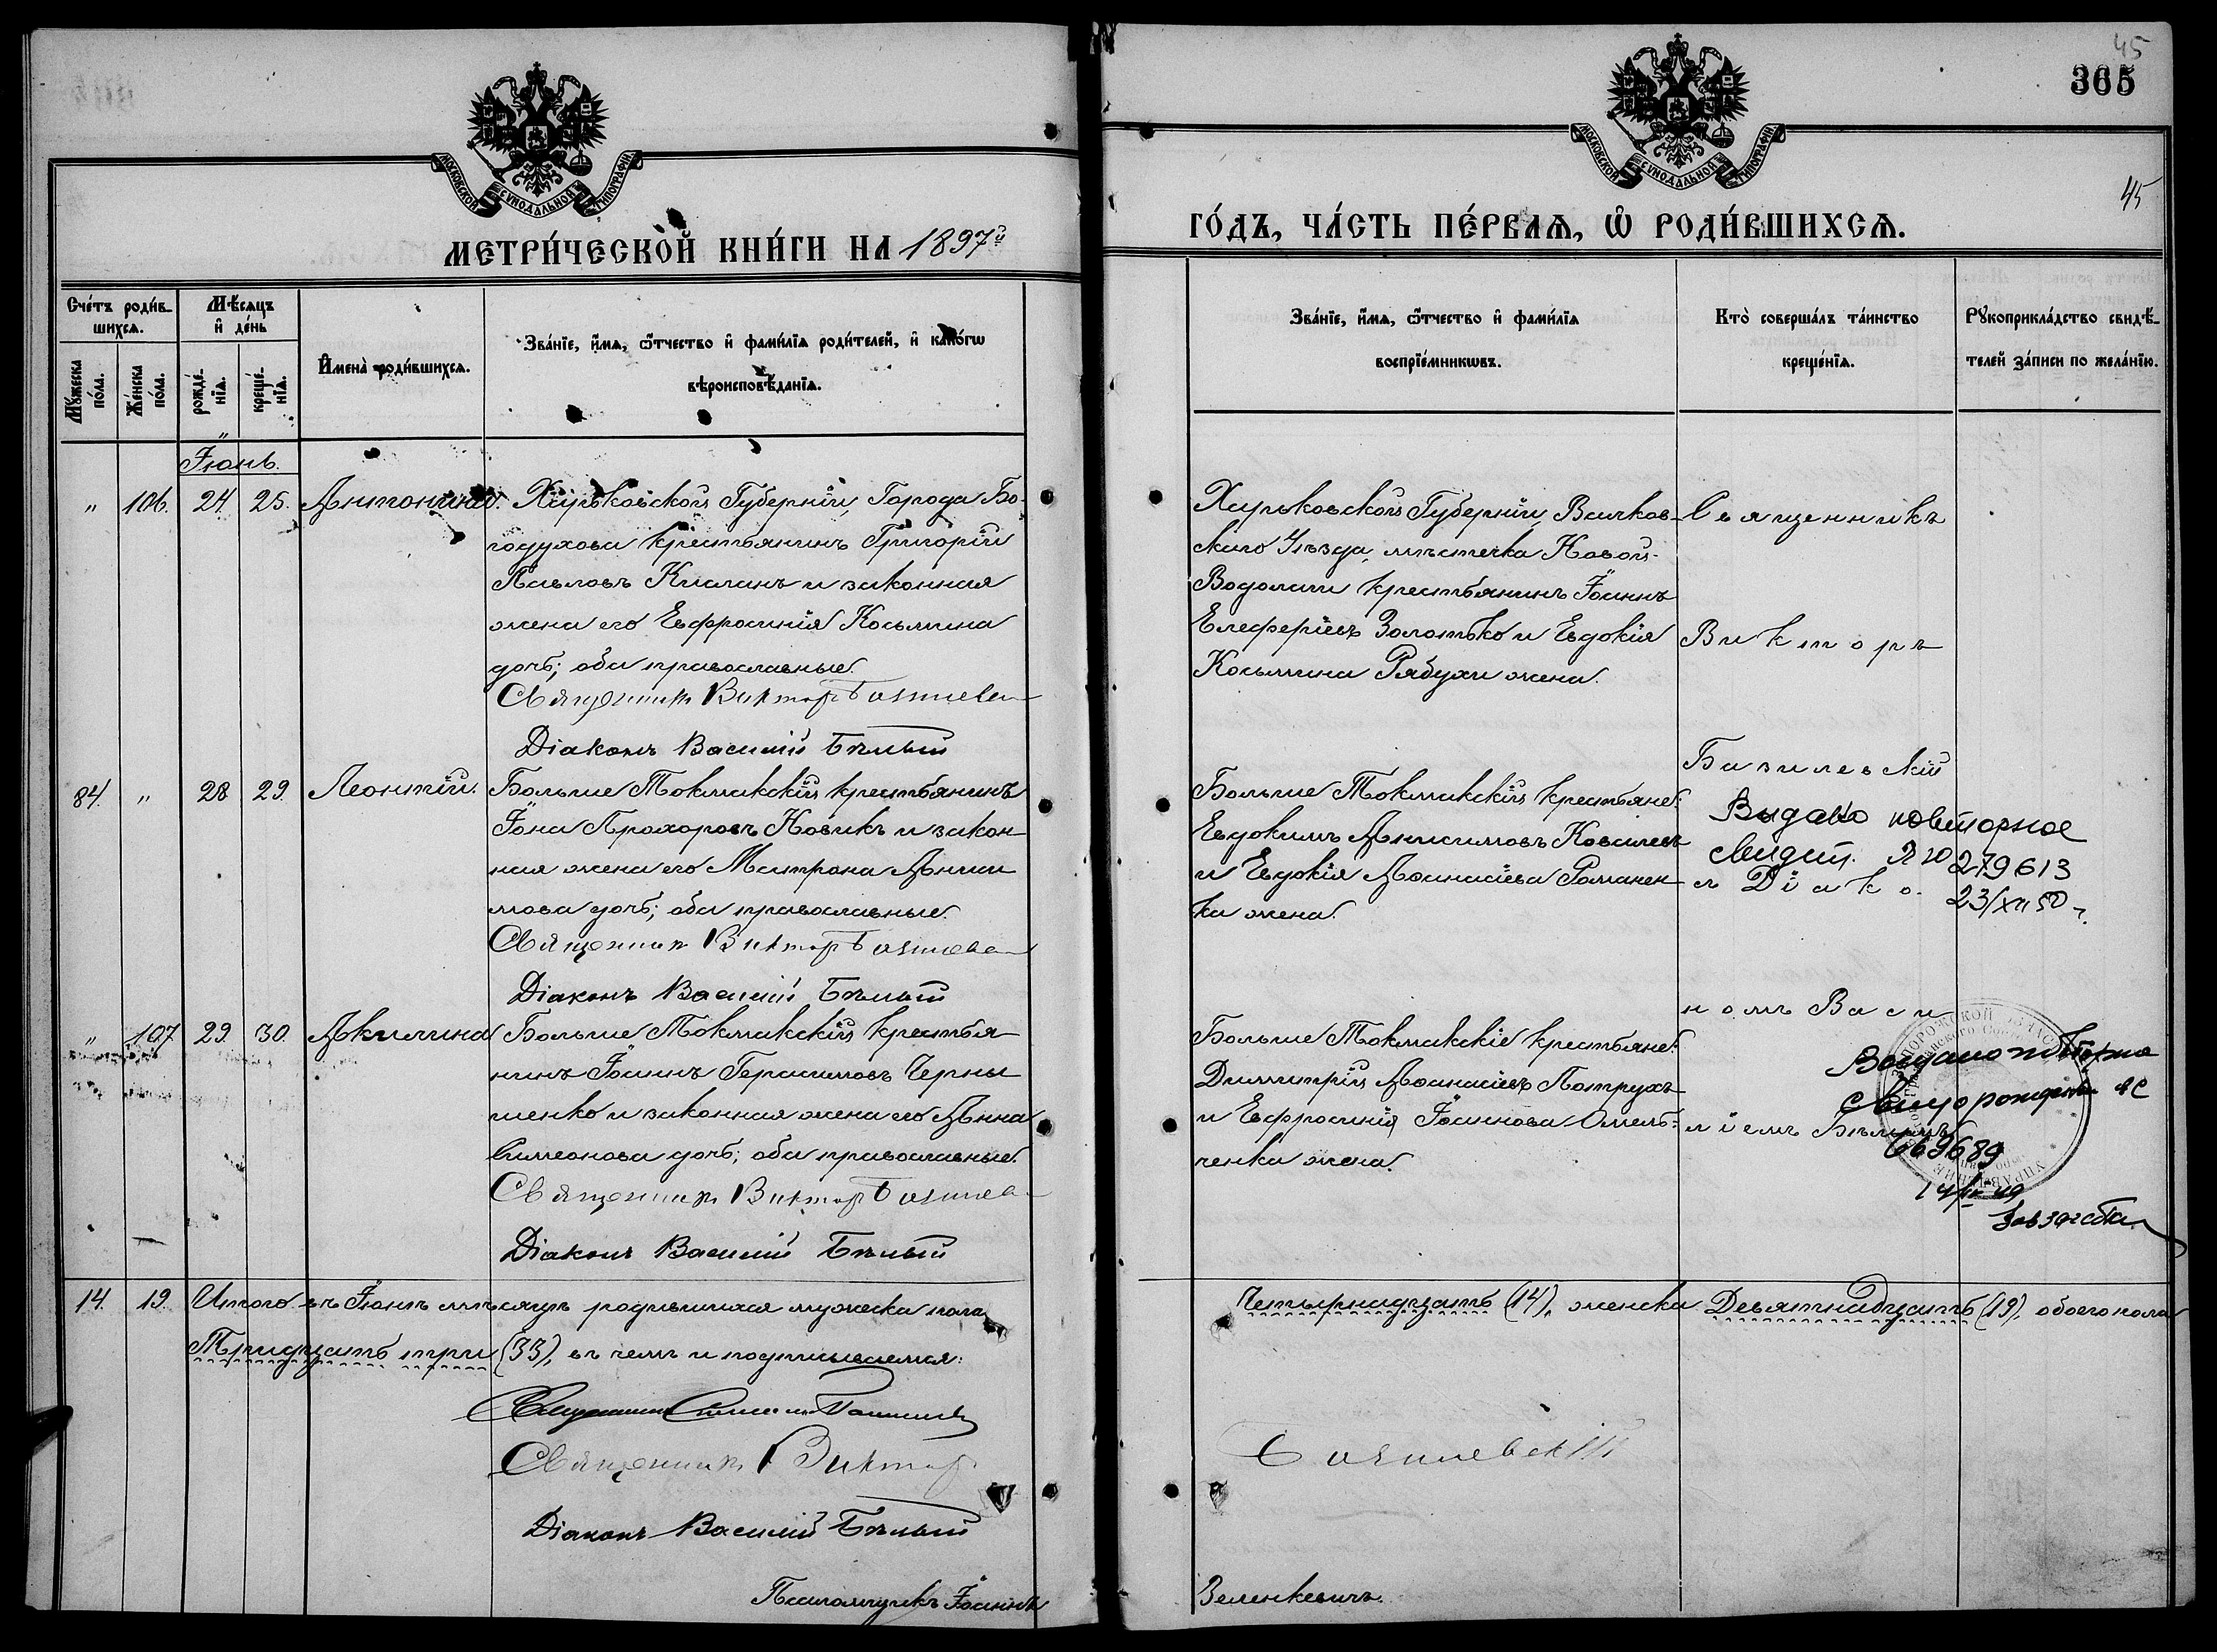 45
365
45
МОСКОВСКОЙ СѴНОДАЛЬНОЙ ТИПОГРАФІИ
МОСКОВСКОЙ СѴНОДАЛЬНОЙ ТИПОГРАФІИ
МЕТРИ́ЧЕСКОЙ КНИ́ГИ НА 1897й
ГО́ДЪ, ЧА́СТЬ ПЕ́РВАѦ, Ѿ РОДИ́ВШИХСѦ.
Сче́тъ роди́в-
шихсѧ.
Мꙋ́жеска по́ла.
Же́нска по́ла.
Мѣ́сѧцъ
и҆ де́нь
рожде́-
нїѧ.
креще́-
нїѧ.
И҆мена̀ роди́вшихсѧ.
Зва́нїе, и҆́мѧ, ѻ҆́тчество и҆ фами́лїѧ роди́телей, и҆ како́гѡ
вѣроисповѣ́данїѧ.
Зва́нїе, и҆́мѧ, ѻ҆́тчество и҆ фами́лїѧ
воспрїе́мникѡвъ.
Кто̀ соверша́лъ та́инство
креще́нїѧ.
Рꙋкоприкла́дство свидѣ́-
телей за́писи по жела́нїю.
Іюнь.
" 106. 24 25. Антонина. Харьковской Губерніи, Города Бо-
годухова крестьянинъ Григорій
Павловъ и законная
жена его Евфросинія Косьмина
дочь; оба православные.
Священникъ Викторъ Базилев
Діаконъ Василій Бѣлый
Харьковской Губерніи, Валков-
скаго Уѣзда, мѣстечка Новой-
Водолаги крестьянинъ Іоаннъ
Елеферіевъ Золотько и Евдокія
Косьмина Рябухи жена.
Священникъ
Викторъ
Базилевскій
84. " 28 29. Леонтій. Больше Токмакскій крестьянинъ
Іона Прохоровъ Новикъ и закон-
ная жена его Матрона Аниси-
мова дочь; оба православные.
Священникъ Викторъ Базилев
Діаконъ Василій Бѣлый
Больше Токмакскій крестьяне:
Евдокимъ Анисимовъ Ковалевъ
и Евдокія Аѳанасіева Романен-
ка жена.
Выдано повторное
свидет. ЯЮ 279613
23/XII 50 г.
съ Діако-
номъ Васи
" 107 29. 30. Акилина Больше Токмакскій крестья-
нинъ Іоаннъ Герасимовъ Черны-
шенко и законная жена его Анна
Симеонова дочь; оба православные.
Священникъ Викторъ Базилев
Діаконъ Василій Бѣлый
Больше Токмакскіе крестьяне:
Димитрій Аѳанасіевъ Потрухъ
и Евфросинія Іоаннова Омель-
ченка жена.
ліемъ Бѣлымъ
Выдано повторно
669689
14/IV 49
Зав загсом
14. 19. Итого въ Іюнѣ мѣсяцѣ родившихся мужеска пола
Четырнадцать (14), женска Девятнадцать (19), обоего пола
Тридцать три (33), въ чемъ и подписываемся:
Священникъ
Священникъ Викторъ
Базилевскій
Діаконъ Василій Бѣлый
Псаломщикъ Іоаннъ
Зеленкевичъ.